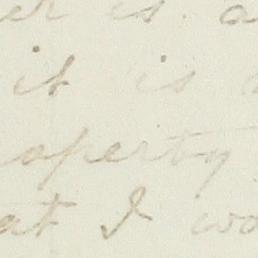 er is a
it is
operty
at I wo